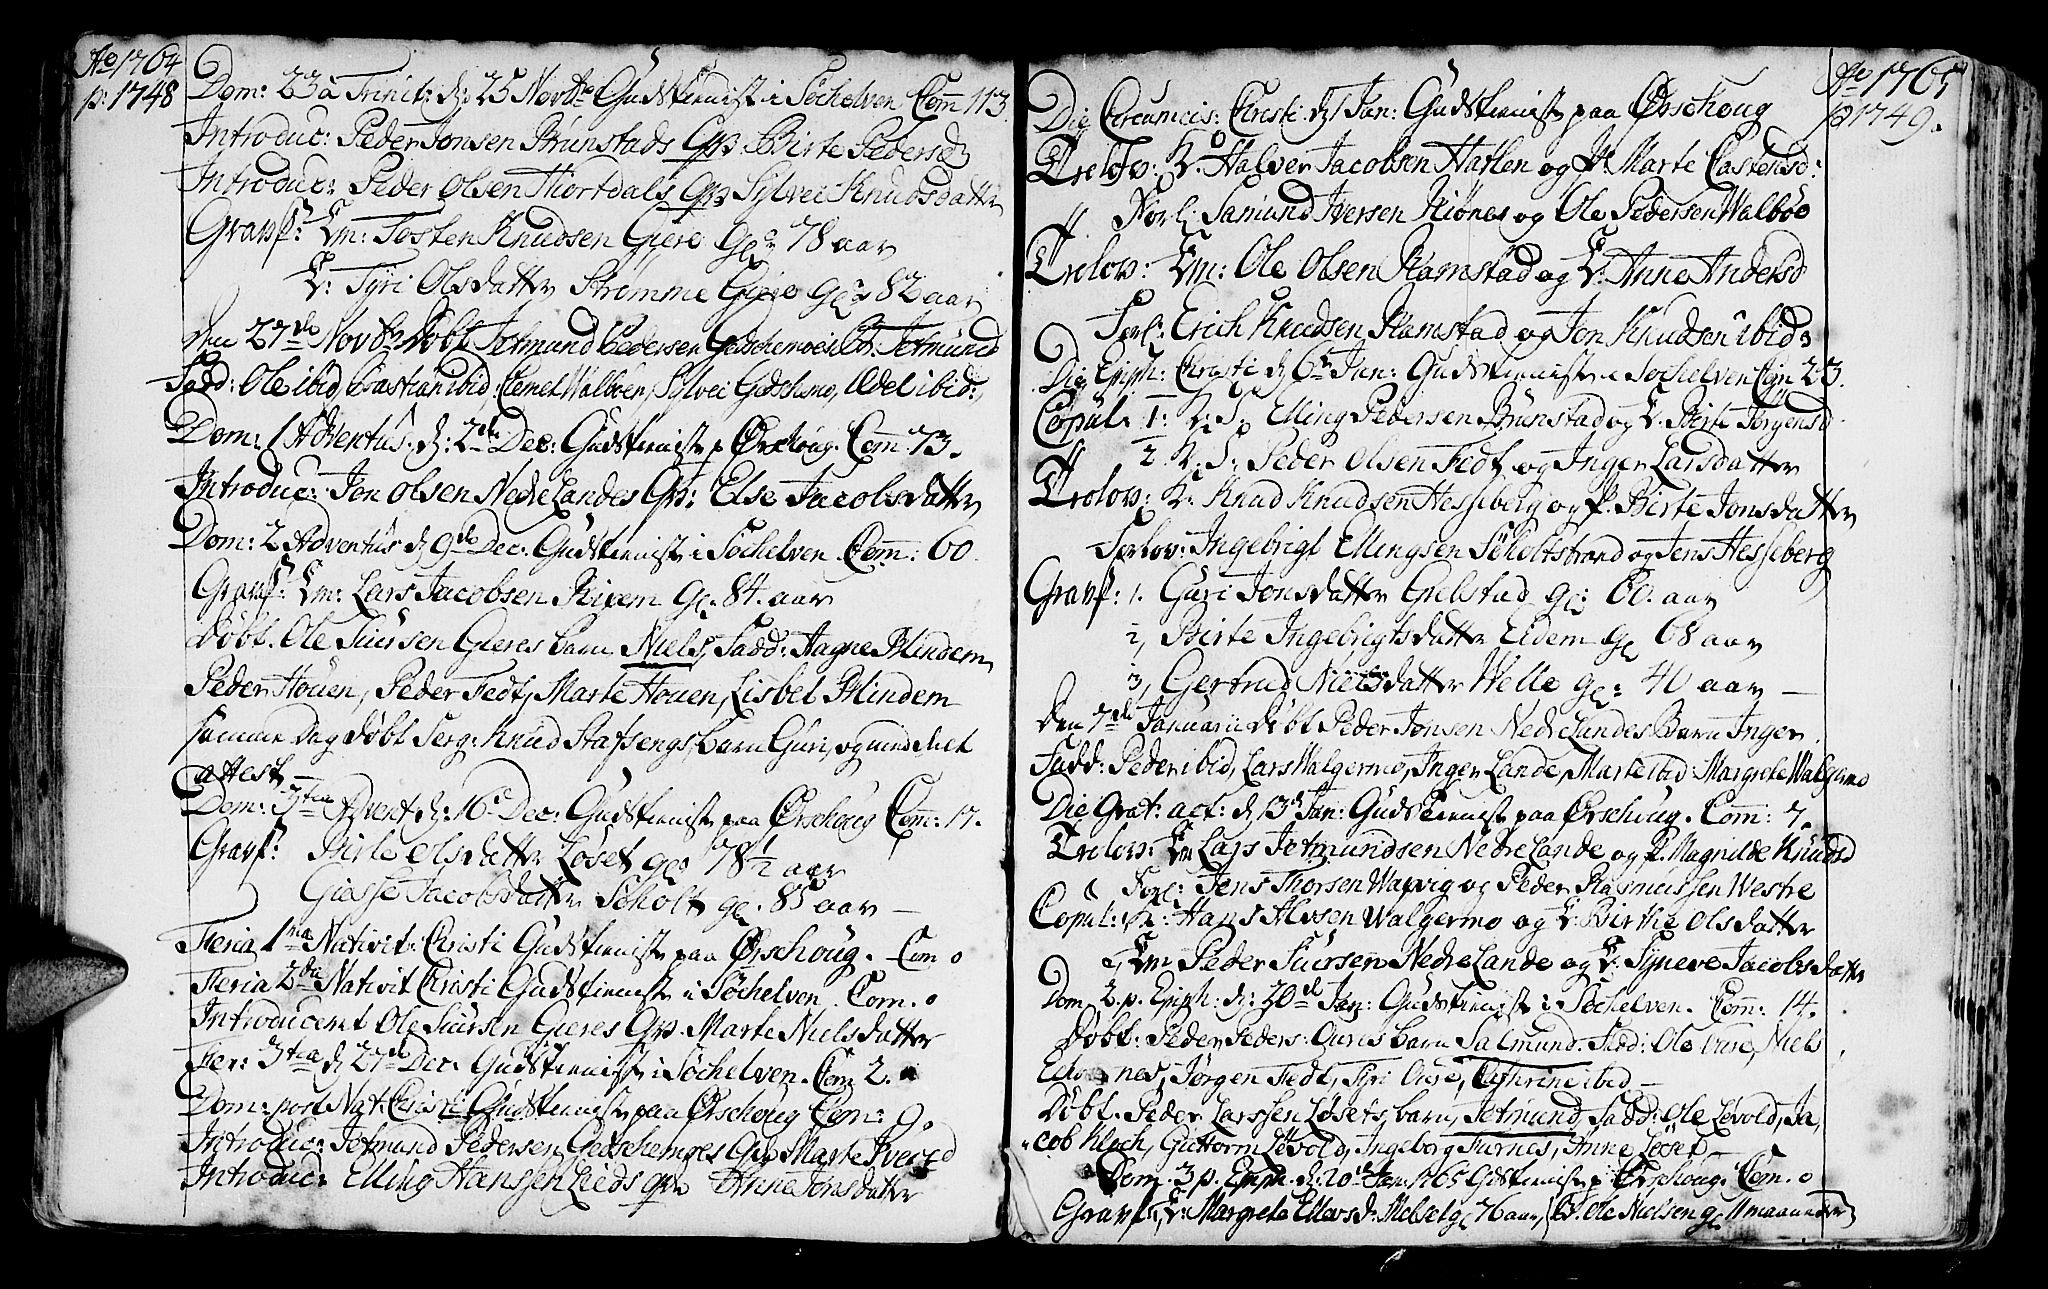 Ao 1764
p: 1748
Dom: 23 a Trinit: d: 25 Novbr Gudstieniste i Söchelven Com 113.
Introduc: Peder Jonsen Brunstads Qv: Birte Pedersd
Introduc: Peder Olsen Hiortdals Qv Sylvei Knudsdatter
Gravf: Em: Tosten Knudsen Giere gl: 78 aar
E: Tyri Olsdatter Strömme Giere gl: 82 aar
den 27de Novbr döbt Jetmund Pedersen Getschemoes B. Jetmund
Fadd: Ole ibid, Bastian ibid, Clemet Walböen, Sylvei Getschmo, Adel ibid:
Dom: 1 Adventus: d: 2de Dec: Gudstieniste p Örschoug. Com 73.
Introduc: Jon Olsen Nedre Landes Qv: Else Jacobsdatter
Dom: 2 Adventus d 9de Dec: Gudstieniste i Söchelven. Com: 60.
Gravf: Em: Lars Jacobsen Kirem gl. 84 aar
Döbt. Ole Siursen Gieres barn Niels, Fadd: Aagne Blindem
Peder Houen, Peder Fedt, Marte Houen, Lisbet Blindem
samme Dag döbt Serg: Knud Stafsengs barn Guri, og med diet
attest
Dom: 3tia Advent d: 16. Dec: Gudstieniste paa Örschoug Com: 17.
Gravf: Birte Olsdatter Löset gl: 78 1/2 aar
Giesse Jacobsdatter Scholt gl. 85 aar
Feria 1ma Nativit: Christi Gudstieniste paa Örschoug. Com 0
Feria 2da Nativit Christi Gudstieniste i Söchelven. Com. 0
Introduceret Ole Siursen Gieres Qv. Marte Nielsdatter
Fer: 3tia d 27de Dec. Gudstieniste i Söchelven. Com 2.
Dom: post Nat: Christi Gudstieniste paa Örschoug Com: 9.
Introduc: Jetmund Pedersen Getschemoes Qv Marte Iversd
Introduc: Elling Hanssen Lieds qv Anne Jonsdatter
Ao 1765
p 1749.
Die Circumcis: Christi d 1 Jan: Gudstieniste paa Örschoug
Trolov: K: Halver Jacobsen Hatlen og P: Marte Castensd:
Forl: Samund Iversen Kiönes og Ole Pedersen Walböe
Trolov: Em: Ole Olsen Ramstad og E: Anne Andersd
Forl: Erich Knudsen Ramstad og Jon Knudsen ibid:
Die Epiph: Christi d 6te Jan: Gudstieniste i Söchelven Com 23.
Copul: 1: K: S: Elling Pedersen Brunstad og E. Birte Jörgensd
2 K: S: Peder Olsen Fedt og Inger Larsdatter
Trolov: K: Knud Knudsen Hesseberg og P. Birte Jonsdatter
Forlov: Ingebrigt Ellingsen Scholtstrand og Jens Hesseberg
Gravf: 1. Guri Jonsdatter Grebstad gl: 60. aar
2, Birte Ingebrigtsdatter Eidem gl 68 aar
3, Gertrud Nielsdatter Welle gl: 40 aar
Den 7de Januarii döbt Peder Jonsen Nedre Landes Barn Inger
Fadd: Peder ibid, Lars Walgermo, Inger Lande, Marte ibid Margrete Walgermo
Die Grat: act: d 13de Jan: Gudstieniste paa Örschoug. Com: 7.
Trolov: Em Lars Jetmundsen Nedre Lande og P. Magnilde Knudsd
Forl: Jens Thorsen Wapvig og Peder Rasmussen Westre
Copul: 1, K: Hans Alvsen Walgermo og E: Birthe Olsdatter
2, Em Peder Siursen Nedre Lande og E: Synneve Jacobsdatter
Dom 2. p. Epiph: d: 20de Jan: Gudstieniste i Söchelven. Com: 14.
Döbt: Peder Peders: Oures barn Salmund. Fadd: Ole Oure, Niels
nes, Jörgen Fedt, Tyri Oure, Cathrine ibid
Döbt. Peder Larssen Lösets barn, Jetmund, Fadd: Ole Levold, Ja,
cob Kloch, Guttorm Levold, Ingeborg Furnes, Anne Löset
Dom. 3 p. Epiph. d: 20de Jan. 1765 Gudstieniste p: Örschoug. Com. 0
Gravf: E: Margrete Ellevsd: Melset gl 76 aar, B. Ole Nielsen gl. 11 maaneder